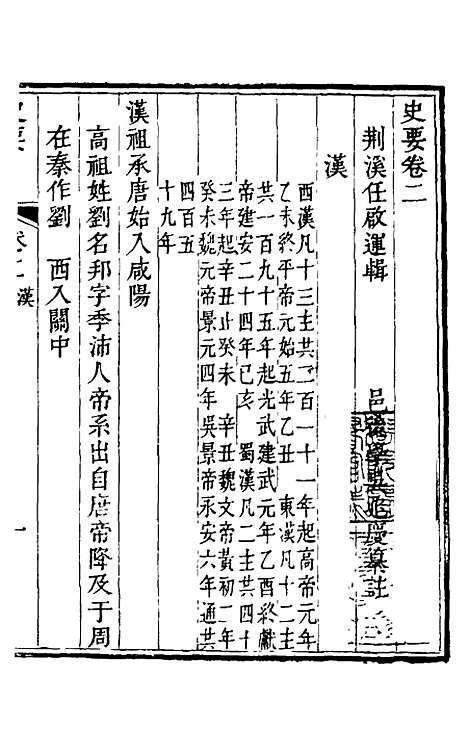 史要卷二
荆溪任啟運輯 邑後學吳兆慶纂註
漢
西漢凡十三主共二百一十一年起高帝元年
乙未終平帝元始五年乙丑 東漢凡十二主
共一百九十五年起光武建武元年乙酉終獻
帝建安二十四年己亥 蜀漢凡二主共四十
三年起辛丑止癸未 辛丑魏文帝黃初二年
癸未魏元帝景元四年吳景帝永安六年通共
四百五
十九年
漢祖承唐始入咸陽
高祖姓劉名邦字季沛人帝系出自唐帝降及于周
在秦作劉 西入關中
史要 卷二 漢 一